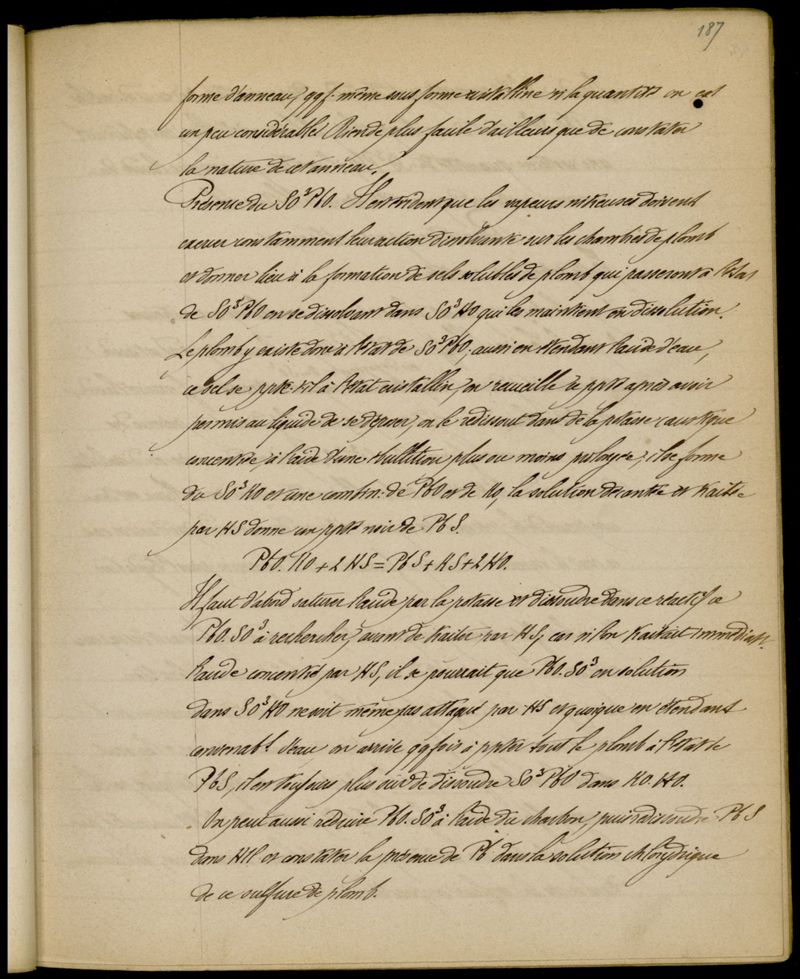 187
forme d'anneau, qqf. même sous forme cristalline si la quantité en est
un peu considérable. Rien de plus facile d'ailleurs que de constater
la nature de cet anneau.
Présence du SO³PbO. Il est évident que les vapeurs nitreuses doivent
exercer constamment leur action dissolvante sur les chambres de plomb
et donner lieu à la formation de sels solubles de plomb qui passeront à l'état
de SO³PbO en se dissolvant dans SO³HO qui les maintient en dissolution.
Le plomb y existe donc à l'état de SO³PbO, aussi en étendant l'acide d'eau,
ce sel se ppte-t-il à l'état cristallin, on recueille ce ppté après avoir
permis au liquide de se déposer, on le redissout dans de la potasse caustique
concentrée à l'aide d'une ébullition plus ou moins prolongée, il se forme
du SO³KO et une combin. de PbO et de KO, la solution décantée et traitée
par HS donne un ppté noir de PbS.
PbO.KO + 2HS = PbS + KS + 2HO.
Il faut d'abord saturer l'acide par la potasse et dissoudre dans ce réactif ce
PbO.SO³ à rechercher, avant de traiter par HS, car si l'on traitait immédiatt.
l'acide concentré par HS, il se pourrait que PbO.SO³ en solution
dans SO³HO ne soit même pas attaqué par HS et quoique en étendant
convenabt. d'eau on arrive qqfois à ppter tout le plomb à l'état de
PbS, il est toujours plus sûr de dissoudre SO³PbO dans KO.HO.
On peut aussi réduire PbO.SO³ à l'aide du charbon, puis redissoudre PbS
dans HCl et constater la présence de Pb dans la solution chlorydrique
de ce sulfure de plomb.